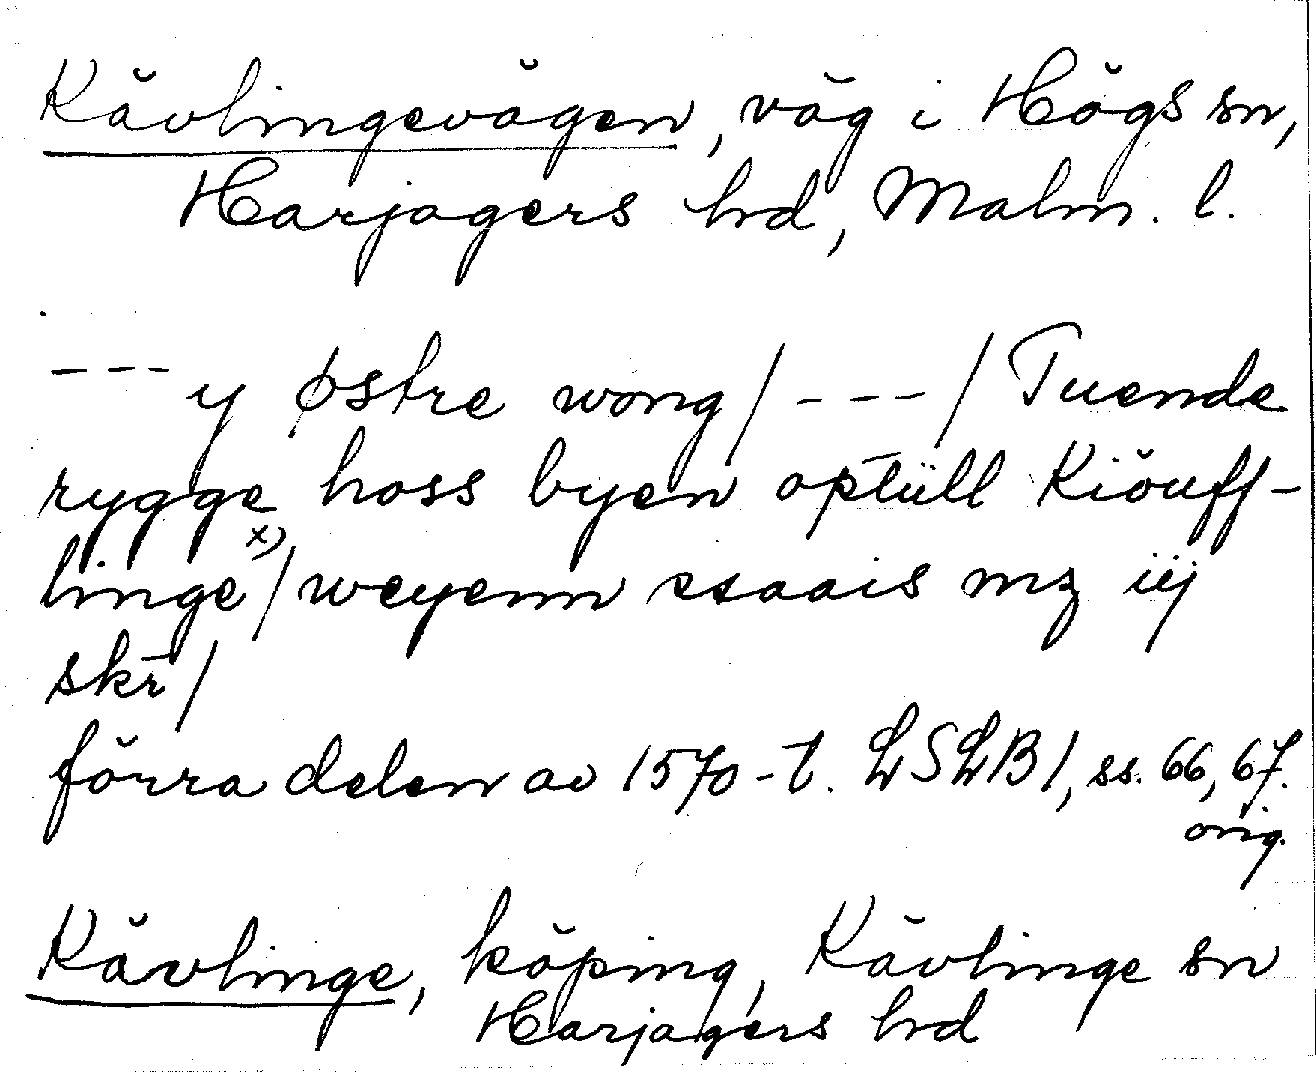 Kävlingevägen, väg i Högs sn,
Harjagers hd, Malm. l.
--- y østre wong/ --- / Tuende
rygge hoss byen optüll Kiöuff-
linge x) / weyenn esaais mz iij
skr̄ /
förra delen av 1570-t. LSLB 1, ss. 66, 67.
orig.
Kävlinge, köping, Kävlinge sn
Harjagers hd